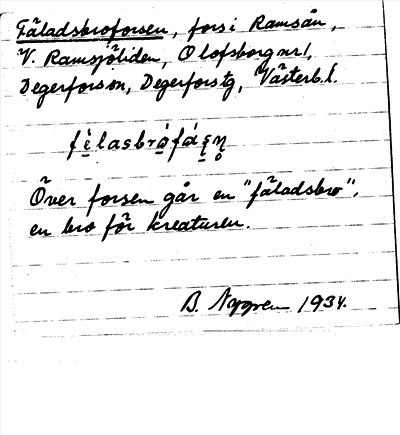 Fäladsbroforsen, fors i Ramsån,
V. Ramsjöliden, Olofsborg nr 1,
Degerforssn, Degerforstg, Västerb. l.
Över forsen går en "fäladsbro",
en bro för kreaturen.
B. Nygren 1934.